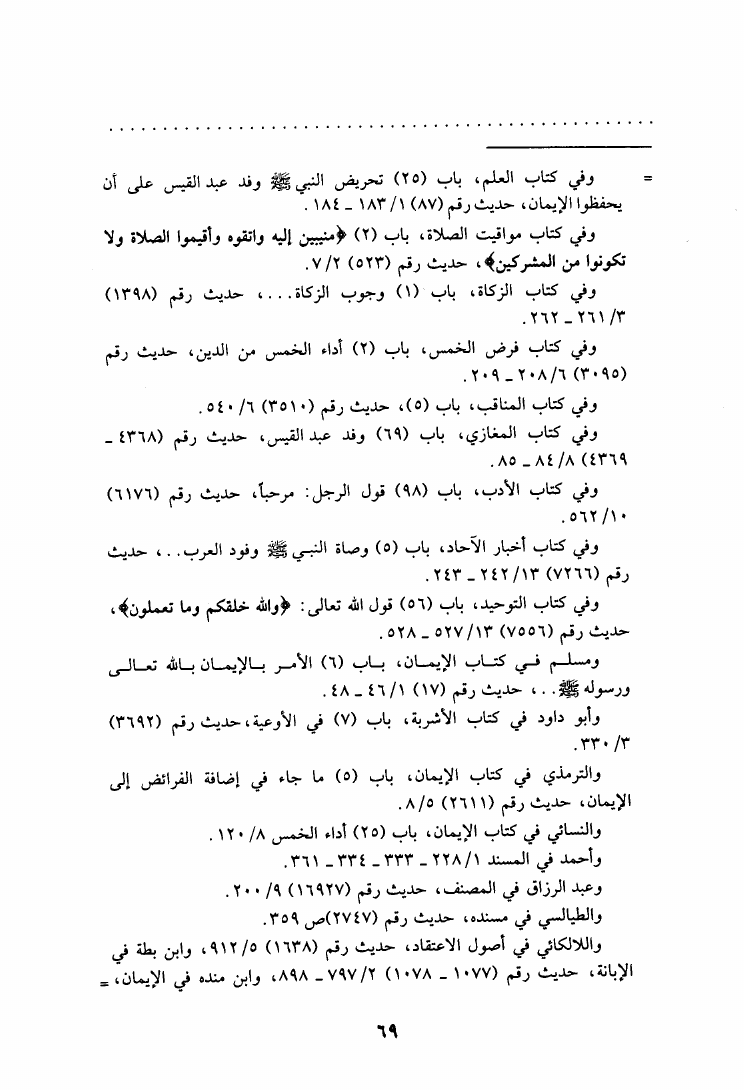 = وفي كتاب العلم، باب (٢٥) تحريض النبي ﷺ وفد عبد القيس على أن
يحفظوا الإيمان، حديث رقم (٨٧) ١/ ١٨٣ ـ ١٨٤ .
وفي كتاب مواقيت الصلاة، باب (٢) ﴿منيبين إليه واتقوه وأقيموا الصلاة ولا
تكونوا من المشركين﴾، حديث رقم (٥٢٣) ٢/ ٧.
وفي كتاب الزكاة، باب (١) وجوب الزكاة...، حديث رقم (١٣٩٨)
٣/ ٢٦١ ـ ٢٦٢ .
وفي كتاب فرض الخمس، باب (٢) أداء الخمس من الدين، حديث رقم
(٣٠٩٥) ٦/ ٢٠٨ ـ ٢٠٩ .
وفي كتاب المناقب، باب (٥)، حديث رقم (٣٥١٠) ٦/ ٥٤٠.
وفي كتاب المغازي، باب (٦٩) وفد عبد القيس، حديث رقم (٤٣٦٨ ـ
٤٣٦٩) ٨/ ٨٤ ـ ٨٥ .
وفي كتاب الأدب، باب (٩٨) قول الرجل: مرحباً، حديث رقم (٦١٧٦)
١٠/ ٥٦٢ .
وفي كتاب أخبار الآحاد، باب (٥) وصاة النبي ﷺ وفود العرب..، حديث
رقم (٧٢٦٦) ١٣/ ٢٤٢ ـ ٢٤٣ .
وفي كتاب التوحيد، باب (٥٦) قول الله تعالى: ﴿والله خلقكم وما تعملون﴾،
حديث رقم (٧٥٥٦) ١٣/ ٥٢٧ ـ ٥٢٨ .
ومسلم في كتاب الإيمان، باب (٦) الأمر بالإيمان بالله تعالى
ورسوله ﷺ..، حديث رقم (١٧) ١/ ٤٦ ـ ٤٨ .
وأبو داود في كتاب الأشربة، باب (٧) في الأوعية، حديث رقم (٣٦٩٢)
٣/ ٣٣٠.
والترمذي في كتاب الإيمان، باب (٥) ما جاء في إضافة الفرائض إلى
الإيمان، حديث رقم (٢٦١١) ٥/ ٨.
والنسائي في كتاب الإيمان، باب (٢٥) أداء الخمس ٨/ ١٢٠ .
وأحمد في المسند ١/ ٢٢٨ ـ ٣٣٣ ـ ٣٣٤ ـ ٣٦١ .
وعبد الرزاق في المصنف، حديث رقم (١٦٩٢٧) ٩/ ٢٠٠ .
والطيالسي في مسنده، حديث رقم (٢٧٤٧) ص ٣٥٩ .
واللالكائي في أصول الاعتقاد، حديث رقم (١٦٣٨) ٥/ ٩١٢، وابن بطة في
الإبانة، حديث رقم (١٠٧٧ ـ ١٠٧٨) ٢/ ٧٩٧ ـ ٨٩٨، وابن منده في الإيمان، =
٦٩